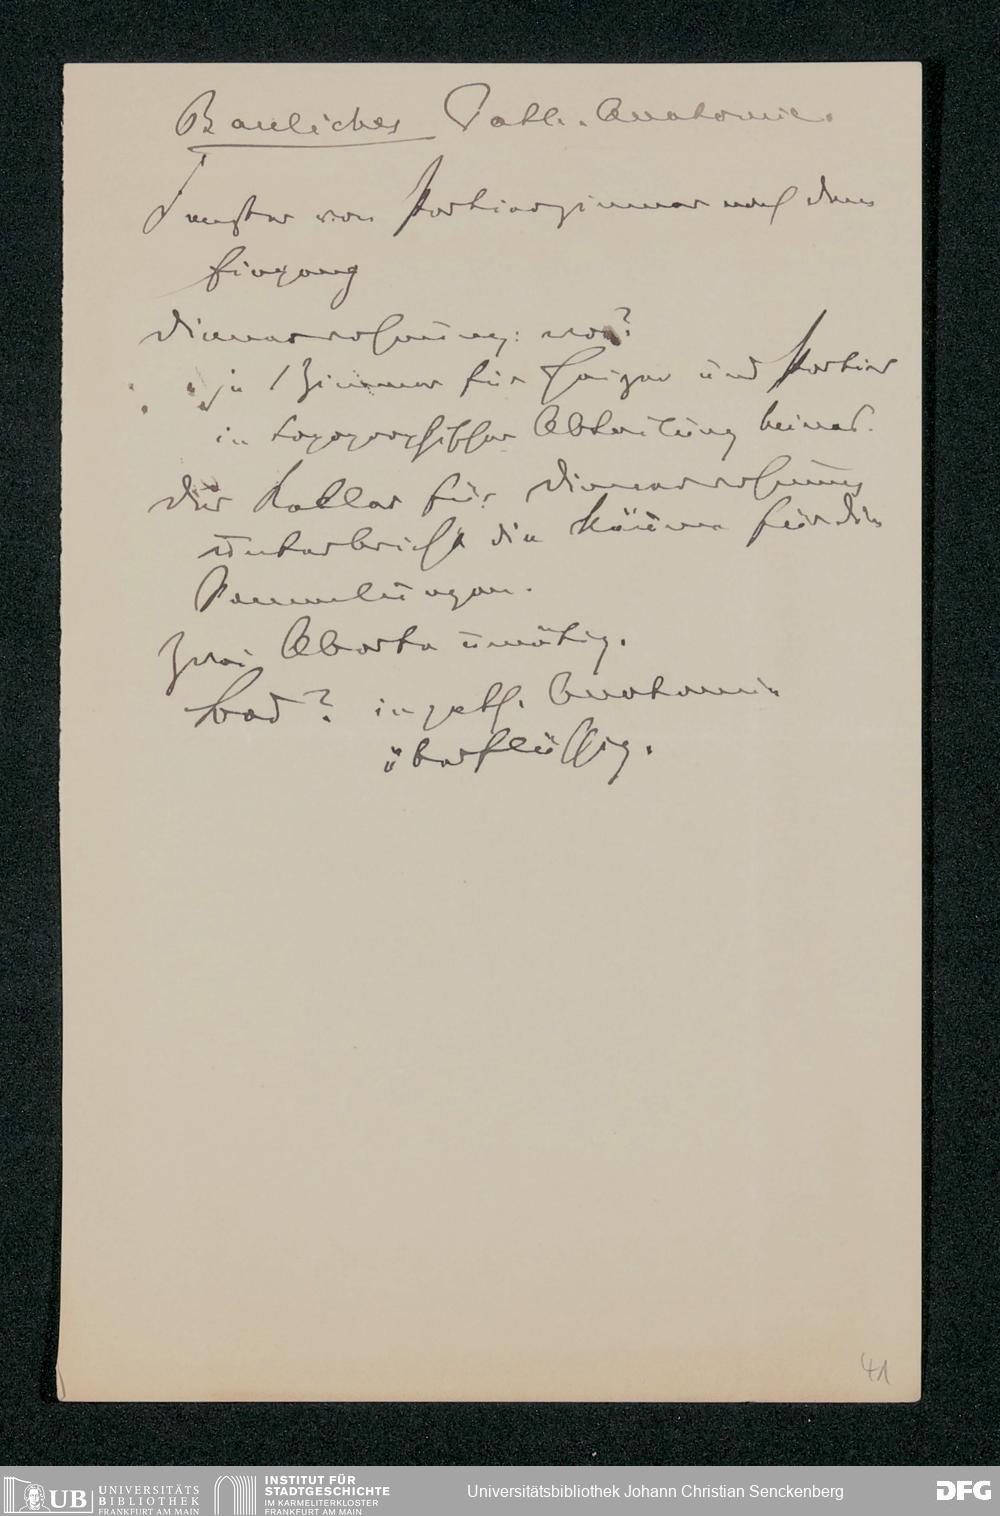 Bauliches Path. Anatomie.
Fenster von Portierzimmer nach dem
Eingang
Dienerwohnung: wo?
je 1 Zimmer für Heizer und Portier
in topographischer Abteilung
Der Keller für Dienerwohnung
unterbricht die Räume für die
Sammlungen.
Zwei Aborte unnötig.
Bad? in path. Anatomie
überflüssig.
41
UB UNIVERSITÄTS
BIBLIOTHEK
FRANKFURT AM MAIN
INSTITUT FÜR
STADTGESCHICHTE
IM KARMELITERKLOSTER
FRANKFURT AM MAIN
Universitätsbibliothek Johann Christian Senckenberg
DFG